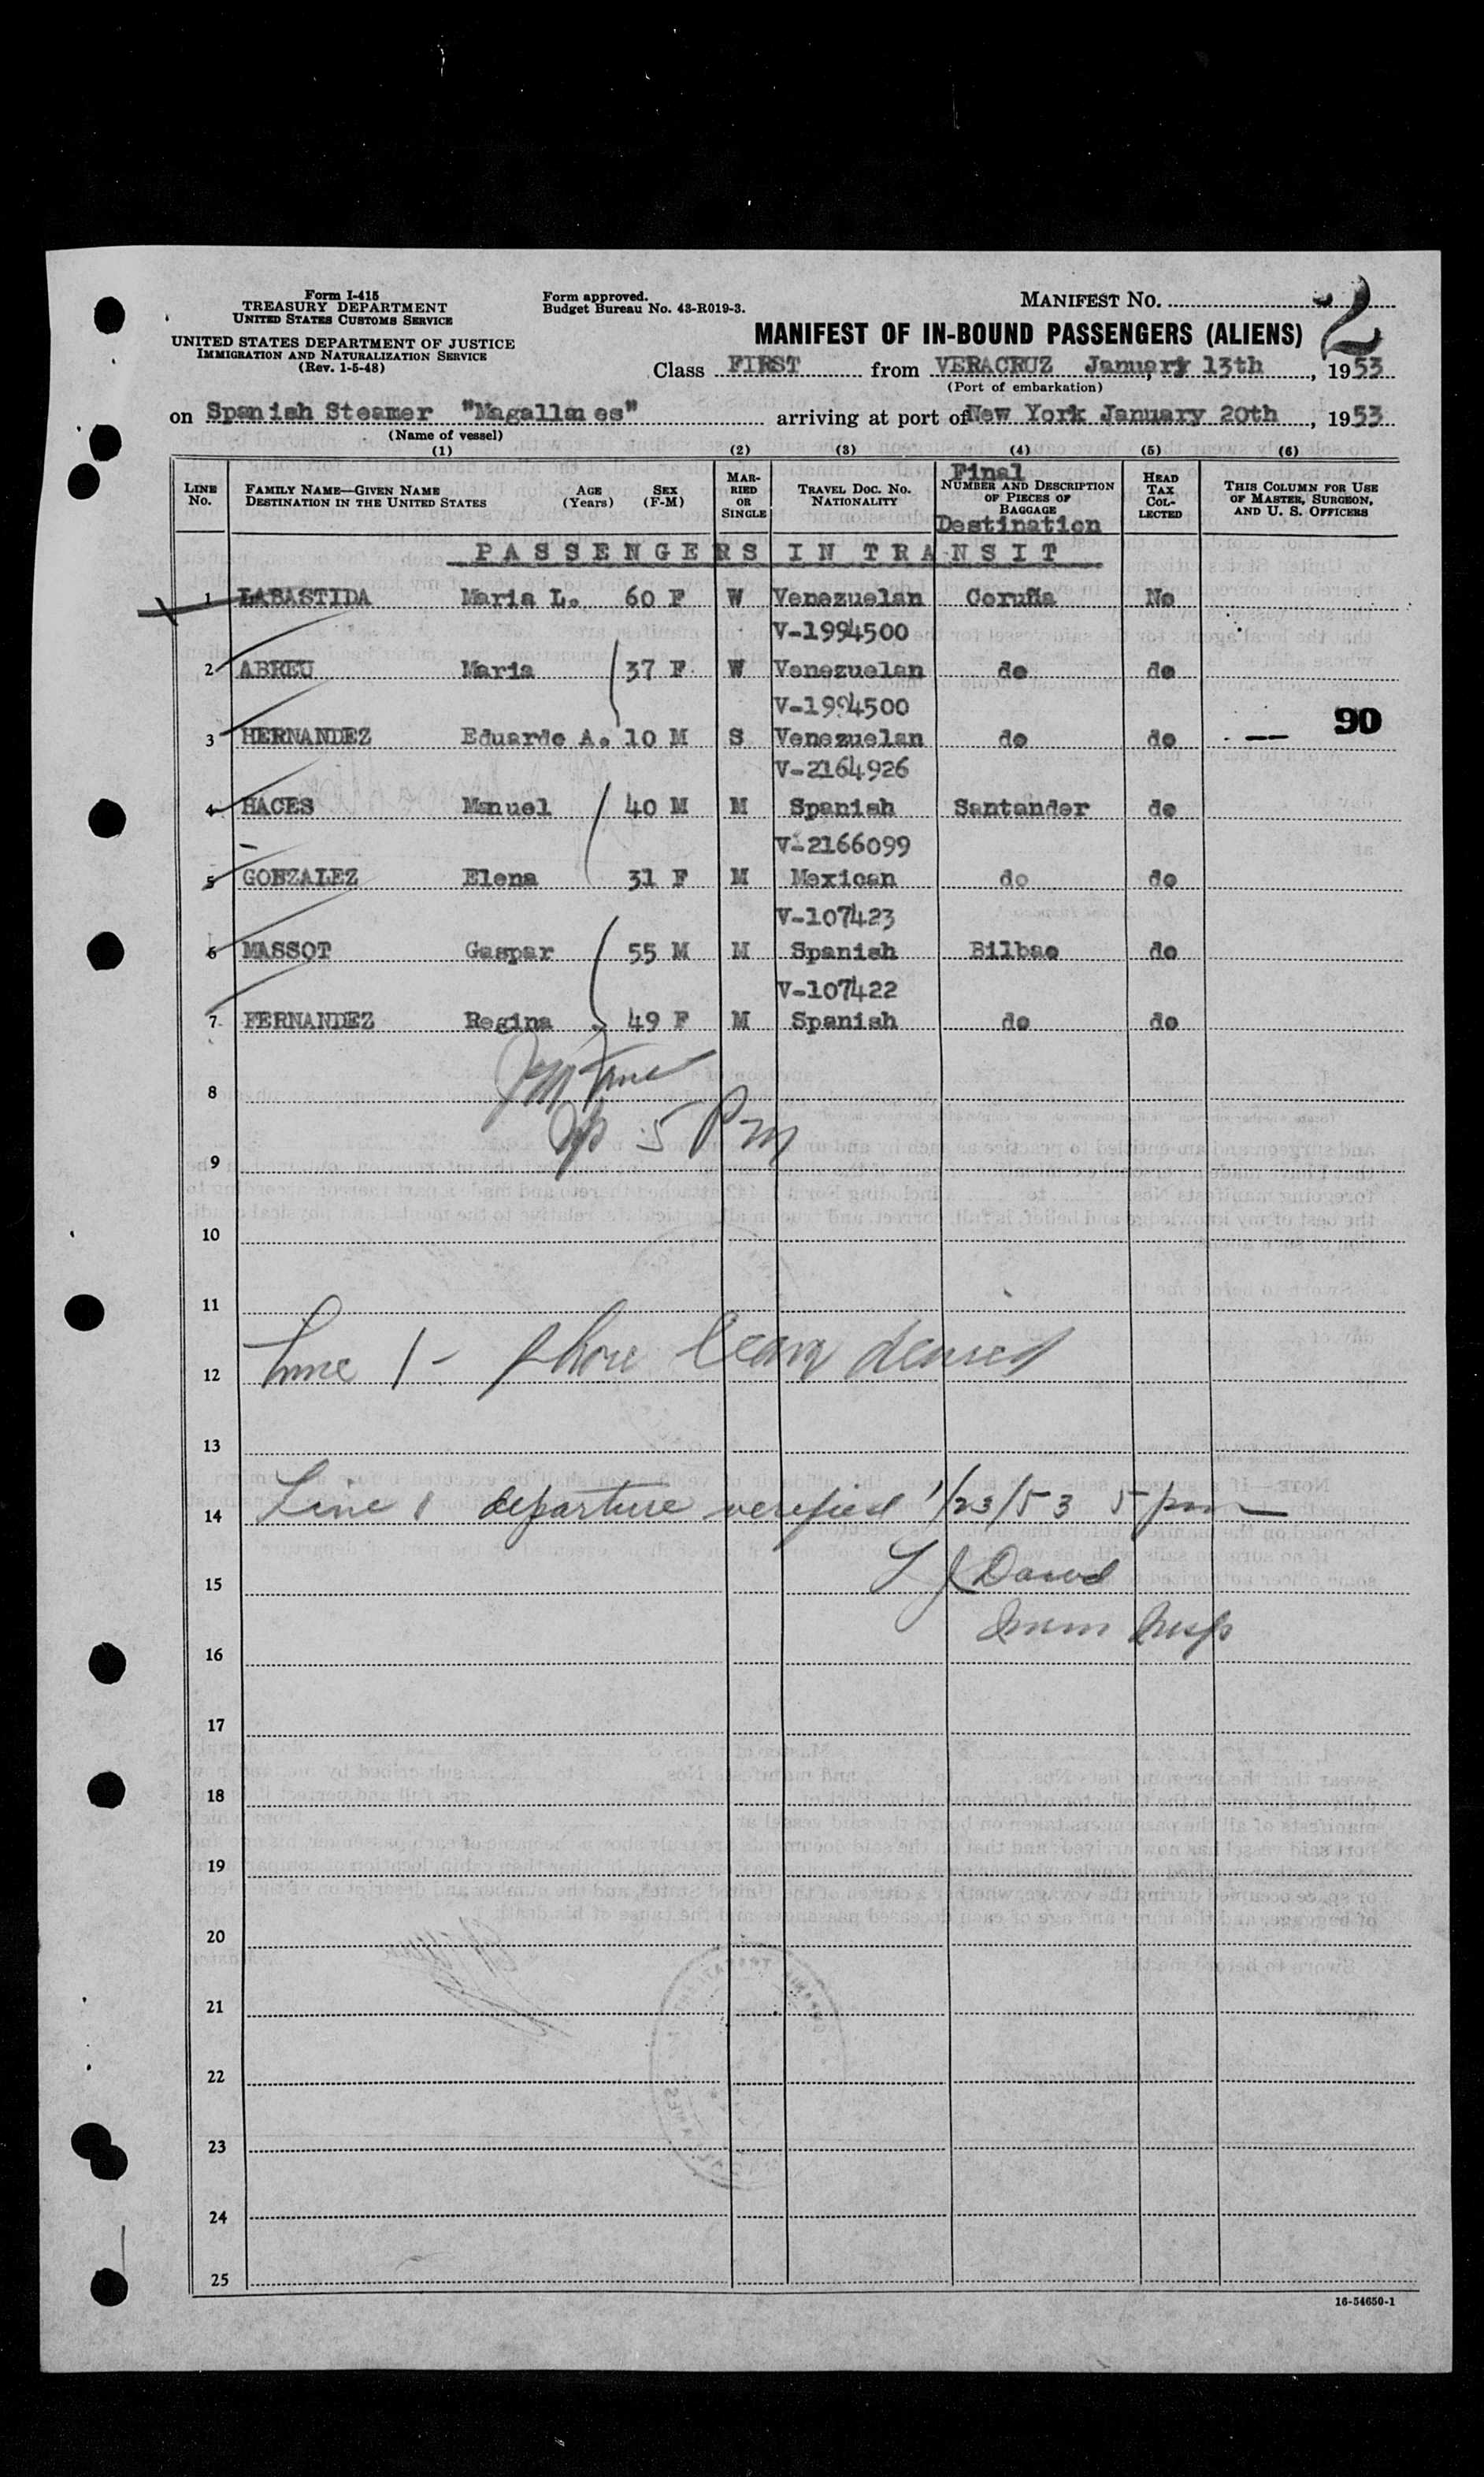 Form I-415
TREASURY DEPARTMENT
UNITED STATES CUSTOMS SERVICE
UNITED STATES DEPARTMENT OF JUSTICE
IMMIGRATION AND NATURALIZATION SERVICE
(Rev. 1-5-48)
Form approved.
Budget Bureau No. 43-R019-3.
MANIFEST NO. 2
MANIFEST OF IN-BOUND PASSENGERS (ALIENS)
Class FIRST from VERACRUZ January 13th, 1953
(Port of embarkation)
on Spanish Steamer "Magallanes" arriving at port of New York January 20th, 1953
(Name of vessel)
(1) (2) (3) (4) (5) (6)
LINE No. FAMILY NAME—GIVEN NAME DESTINATION IN THE UNITED STATES AGE (Years) SEX (F-M) MARRIED OR SINGLE TRAVEL DOC. NO. NATIONALITY Final NUMBER AND DESCRIPTION OF PIECES OF BAGGAGE Destination HEAD TAX COLLECTED THIS COLUMN FOR USE OF MASTER, SURGEON, AND U. S. OFFICERS
PASSENGERS IN TRANSIT
1 LABASTIDA Maria L. 60 F W Venezuelan Coruña No
V-1994500
2 ABREU Maria 37 F W Venezuelan do do
V-1994500
3 HERNANDEZ Eduardo A. 10 M S Venezuelan do do -- 90
V-2164926
4 HACES Manuel 40 M M Spanish Santander do
V-2166099
5 GONZALEZ Elena 31 F M Mexican do do
V-107423
6 MASSOT Gaspar 55 M M Spanish Bilbao do
V-107422
7 FERNANDEZ Regina 49 F M Spanish do do
8
5 PM
9
10
11
12 Line 1 - shore leave denied
13
14 Line 1 departure verified 1/23/53 5 pm
15
Imm Insp
16
17
18
19
20
21
22
23
24
25
16-54650-1